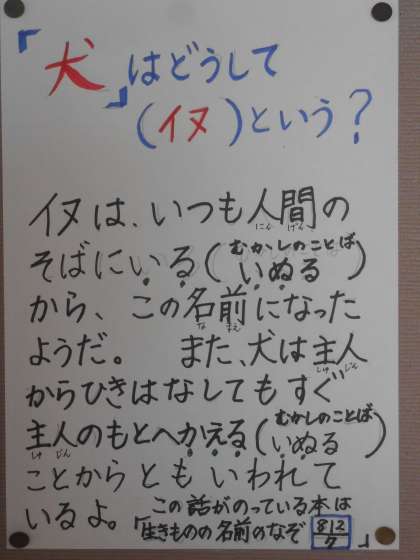 「犬」はどうして
(イヌ)という？
イヌは、いつも人間の
にん げん
むかしのことば
そばにいる(いぬる)
から、この名前になった
な まえ
ようだ。 また、犬は主人
しゅ じん
からひきはなしてもすぐ
むかしのことば
主人のもとへかえる(いぬる)
しゅ じん
ことからともいわれて
いるよ。
「この話がのっている本は
生きものの名前のなぞ 812
ウ」